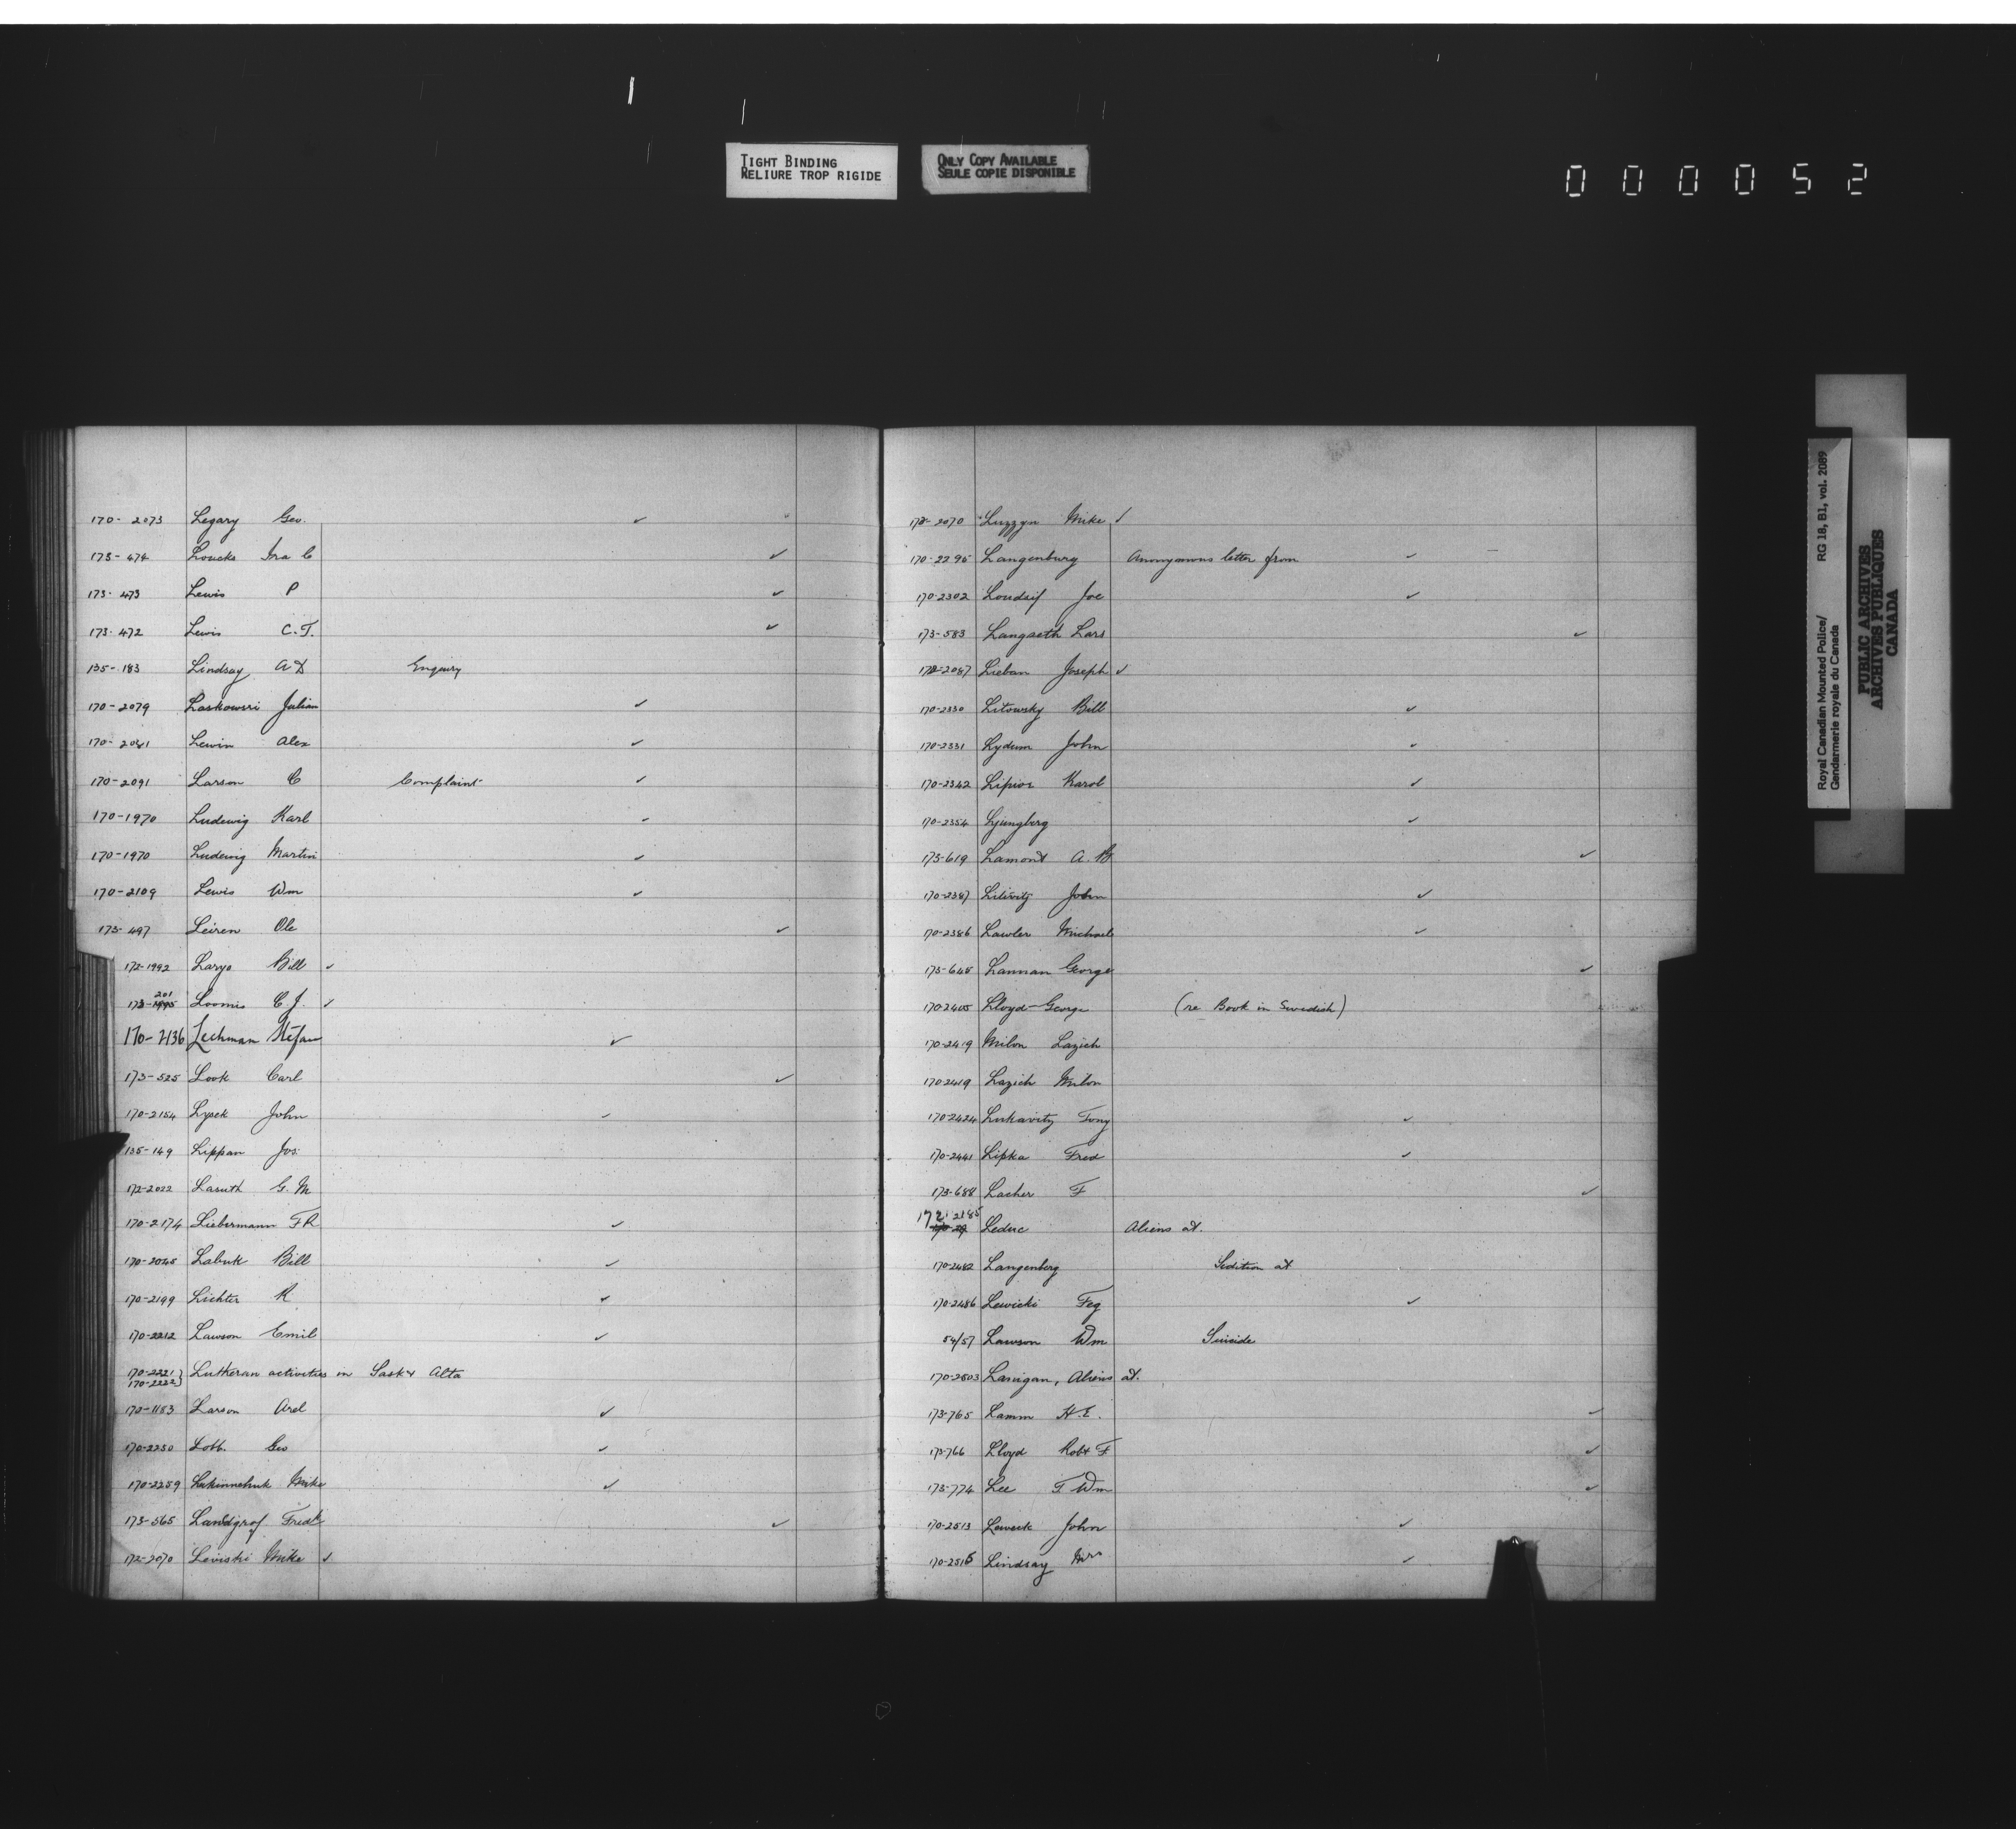 TIGHT BINDING
RELIURE TROP RIGIDE
ONLY COPY AVAILABLE
SEULE COPIE DISPONIBLE
000052
170-2073 Legary Geo.
173-474 Loucks Ira C ✓
173-473 Lewis P ✓
173-472 Lewis C.T. ✓
135-183 Lindsay A D Enquiry
170-2079 Laskowski Julian ✓
170-2081 Lewin Alex ✓
170-2091 Larson C Complaint ✓
170-1970 Ludewig Karl ✓
170-1970 Ludewig Martin ✓
170-2109 Lewis Wm ✓
173-497 Leiren Ole ✓
172-1992 Laryo Bill ✓
173-201 Loomis C.J. ✓
170-2136 Lechman Stefan ✓
173-525 Look Carl ✓
170-2154 Lysek John ✓
135-149 Lippan Jos.
172-2022 Lasuth G.M
170-2174 Liebermann F R ✓
170-2045 Labuk Bill ✓
170-2199 Lichter R ✓
170-2212 Lawson Emil ✓
170-2221 } Lutheran activities in Sask & Alta
170-2222 }
170-1183 Larson Axel ✓
170-2250 Lobb. Geo ✓
170-2259 Mike ✓
173-565 Landgraf Fredk ✓
172-2070 Leviski Mike ✓
172-2070 Luzzyn Mike ✓
170-2295 Langenburg Anonymous letter from ✓
170-2302 Joe ✓
173-583 Langaeth Lars ✓
172-2087 Lieban Joseph ✓
170-2330 Litowsky Bill ✓
170-2331 Lydum John ✓
170-2342 Lipior Karol ✓
170-2354 Ljungberg ✓
173-619 Lamont A. ✓
170-2387 John ✓
170-2386 Lawler Michael ✓
173-645 Lannan George ✓
170-2405 Lloyd-George (re Book in Swedish)
170-2419 Milon Lazich
170-2419 Lazich Milon
170-2424 Lukavitz Tony ✓
170-2441 Lipka Fred ✓
173-688 Lacher F ✓
172-2185 Leduc Aliens at.
170-2482 Langenberg Sedition at
170-2486 Lewicki Feg ✓
54/57 Lawson Wm Suicide
170-2503 Lanigan, Aliens at.
173-765 Lamm H.E. ✓
173-766 Lloyd Robt F ✓
173-774 Lee T Wm ✓
170-2513 John ✓
170-2515 Lindsay Mrs ✓
Royal Canadian Mounted Police/ RG 18, B1, vol. 2089
Gendarmerie royale du Canada
PUBLIC ARCHIVES
ARCHIVES PUBLIQUES
CANADA